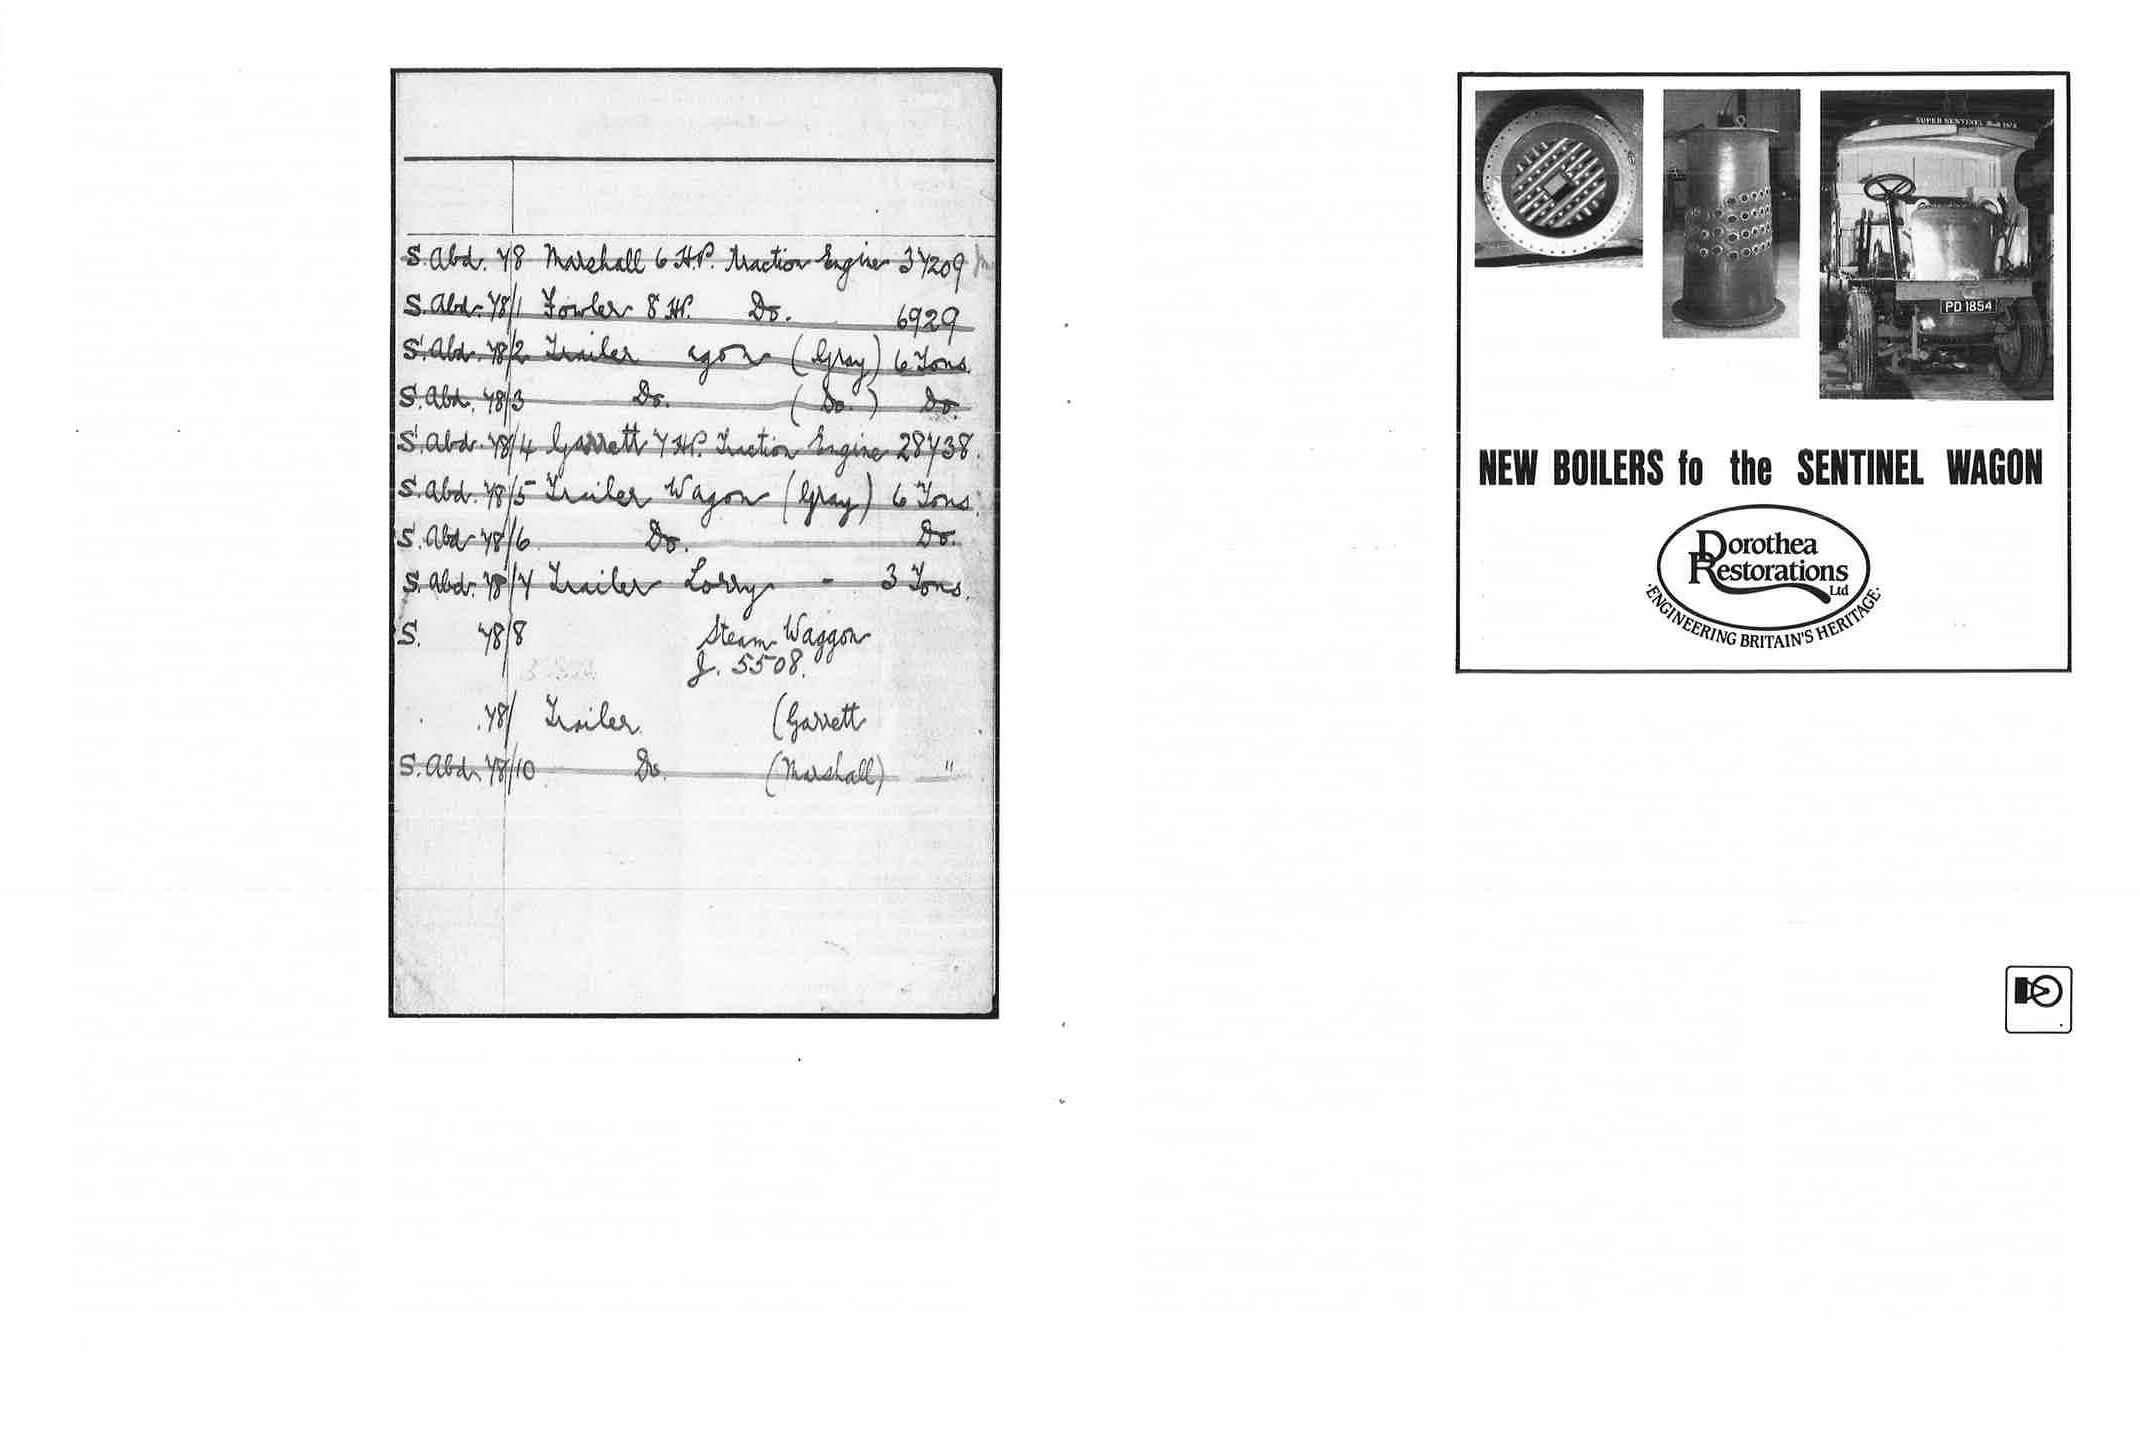 S. Abd. 78 Marshall 6 H.P. Traction Engine 37209
S. Abd. 78/1 Fowler 8 H.P. Do. 6929
S. Abd. 78/2 Trailer agon (Gray) 6 Tons.
S. Abd. 78/3 Do. (Do.) Do.
S. Abd. 78/4 Garrett 7 H.P. Traction Engine 28738.
S. Abd. 78/5 Trailer Wagon (Gray) 6 Tons.
S. Abd 78/6 Do. Do.
S. Abd. 78/7 Trailer Lorry - 3 Tons.
S. 78/8 Steam Waggon
J. 5508.
78/ Trailer (Garrett
S. Abd. 78/10 Do. (Marshall) "
SUPER SENTINEL
PD 1854
NEW BOILERS fo the SENTINEL WAGON
Dorothea
Restorations
Ltd
·ENGINEERING BRITAIN'S HERITAGE·